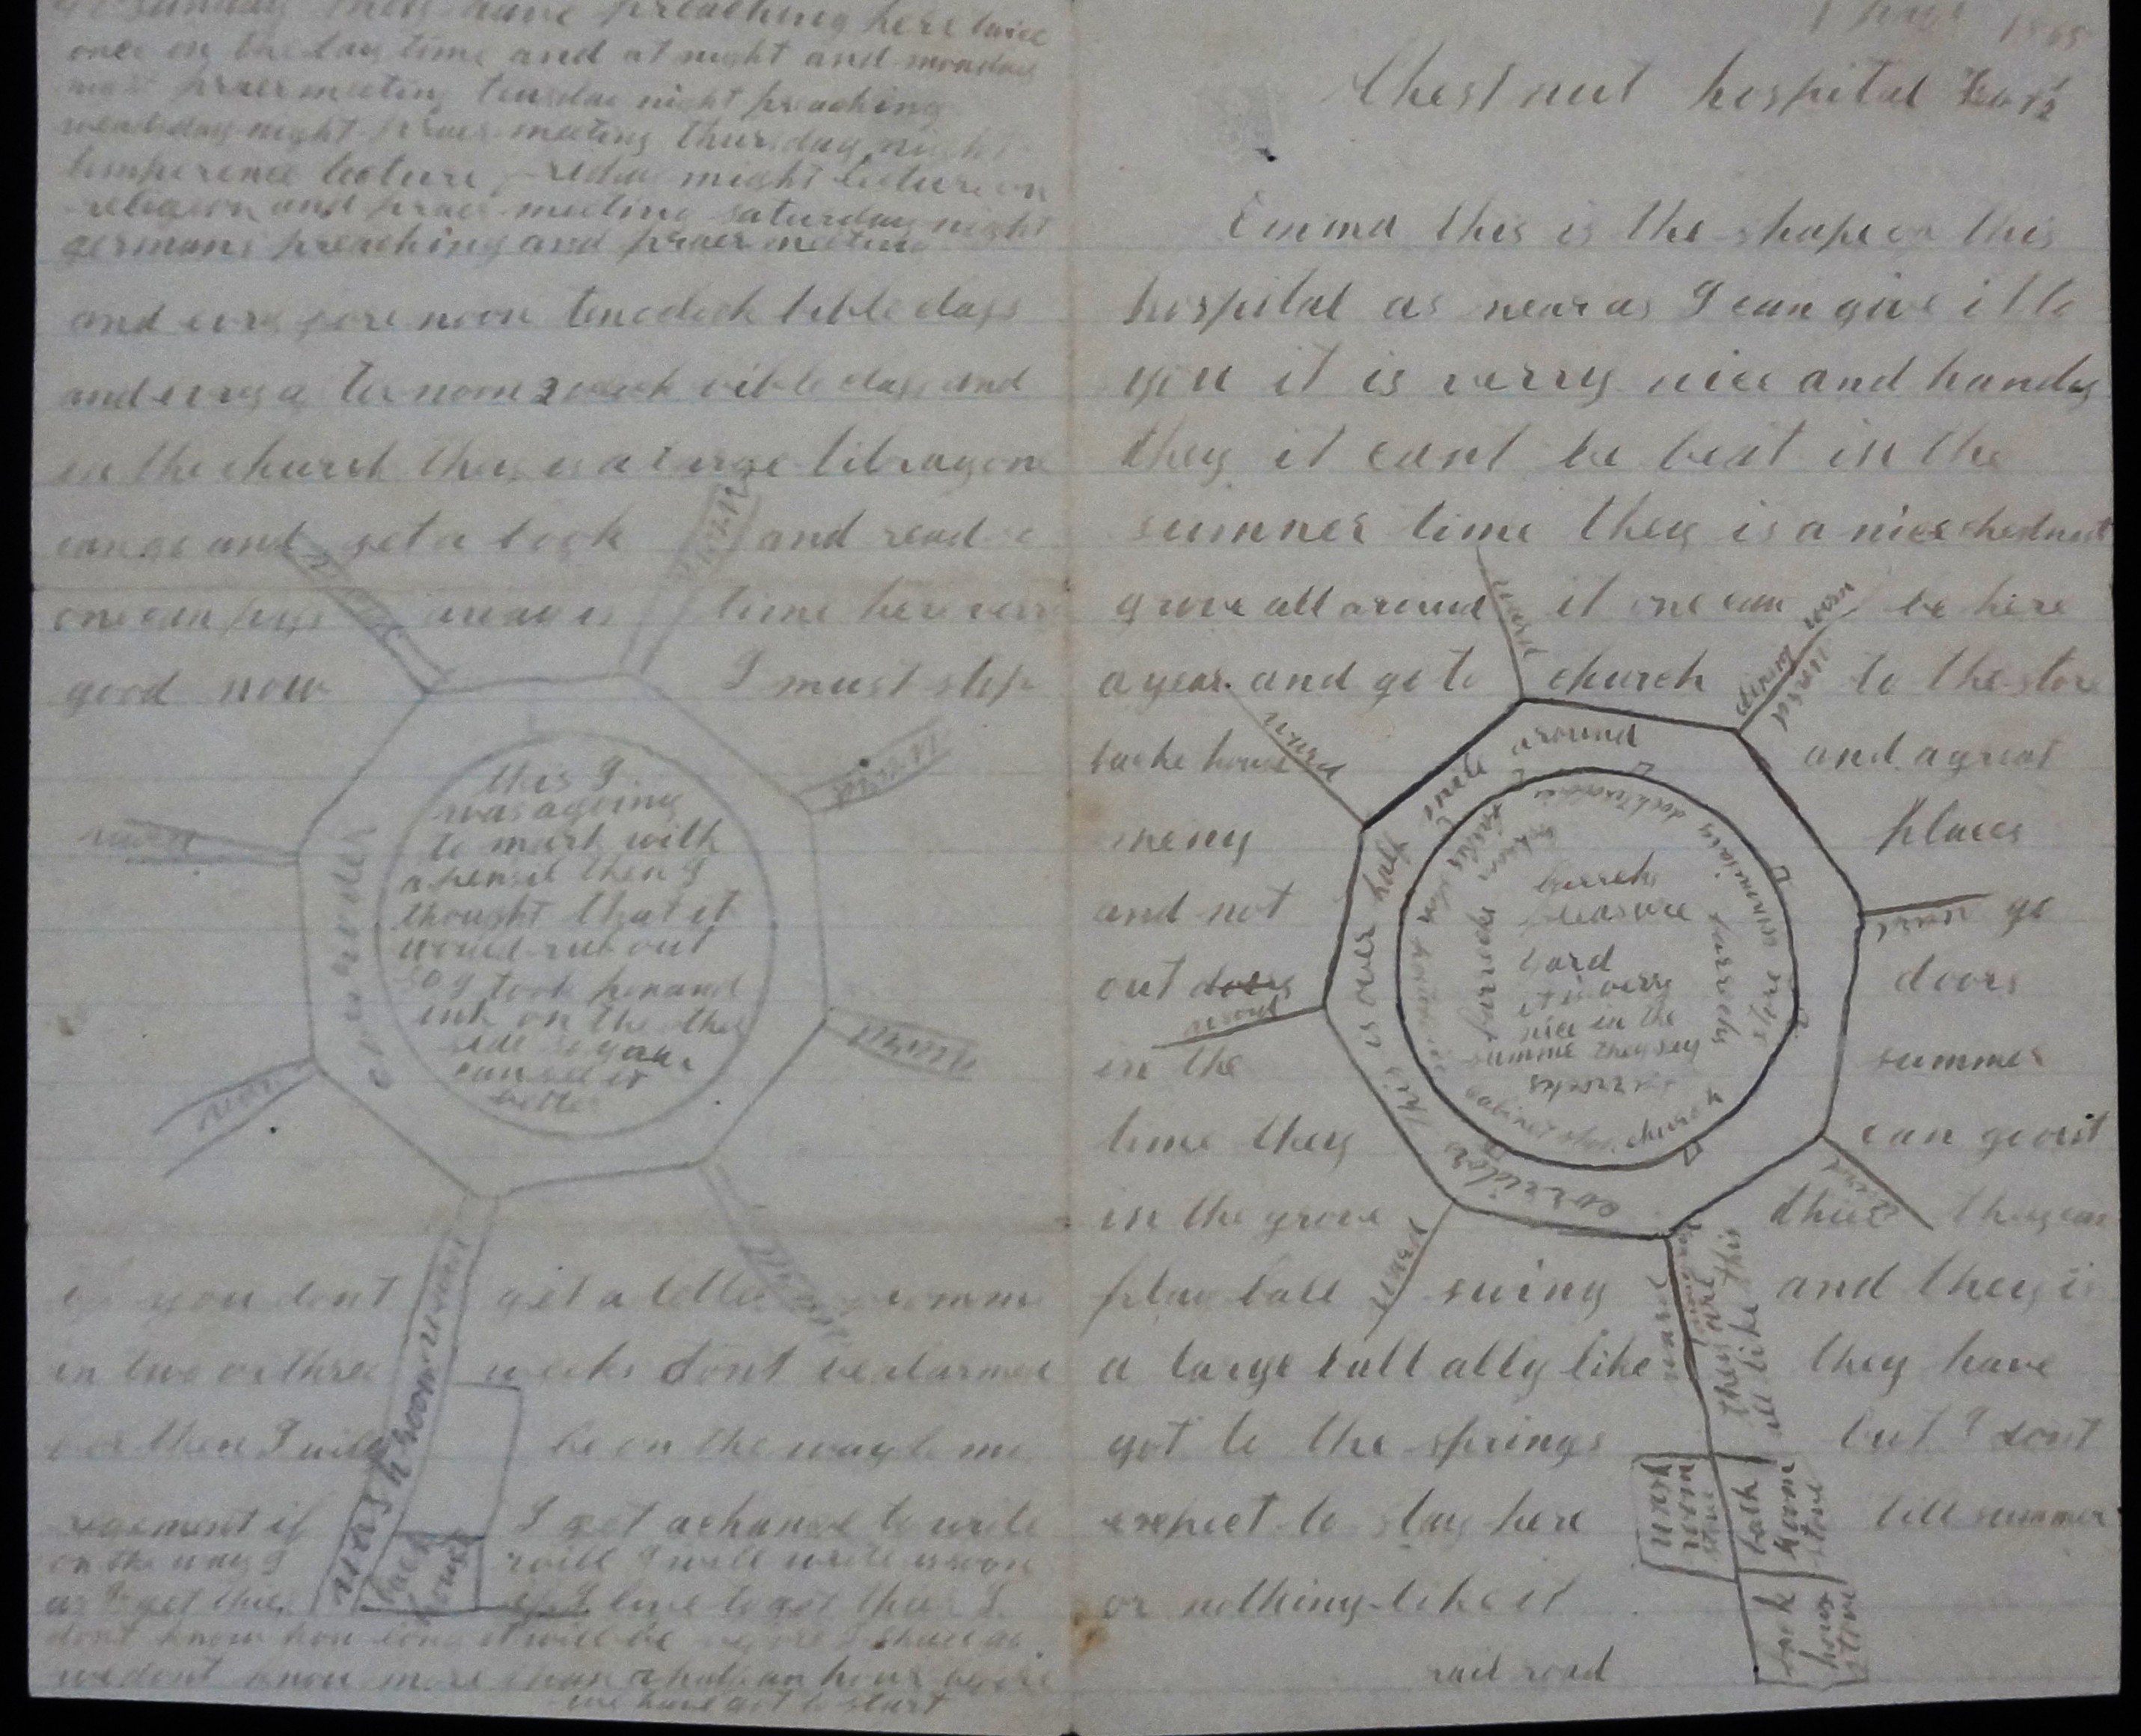 sunday they have preaching here twice
once in the day time and at night and monday
night praermeeting teusdae night preaching
night praer meeting thursday night
temperence lecture night lecture on
religion and praer meeting saturday night
germans preaching and praer meeting
and evry fore noon ten oclock bible class
and evry a ter noon 2 oclock bible class and
in the church they is a large libray one
can go and get a book and read
one can pass time here very
good now I must stop
ward
ward
ward
ward
ward
ward
corridor
this I
was agoing
to mark with
a pensil then I
thought that it
would rub out
so I took pen and
ink on the other
side so you
can see it
better
you dont get a letter
in two or three weeks dont be alarmed
for then I will be on the way to my
regement if I get a chance to write
on the way I will I will write as soon
as I get thier if I live to get thier I
dont know how long it will be before I shall go
we dont know more than a half an hour before
we have got to start
wash room
back
house
1865
Chestnut hospital
Emma this is the shape on this
hospital as near as I can give it to
you it is verry nice and handy
they it cant be beat in the
summer time they is a nice chestnut
grove all around it one can be here
a year and go to church to the store
and a great
meny places
and not go
out doers doors
in the summer
time they can go out
in the grove thier they can
play ball swing and they is
a large ball ally like they have
got to the springs but I dont
expect to stay here till summer
or nothing like it
rail road
ward
dining room
ward
ward
ward
ward
ward
ward
corridor this is over half mile around
pleasure
yard
it is verry
nice in the
summe they say
barracks
store
church
ward
they are
all like this
wash
room
stove
bath
room
stove
back
house
stove